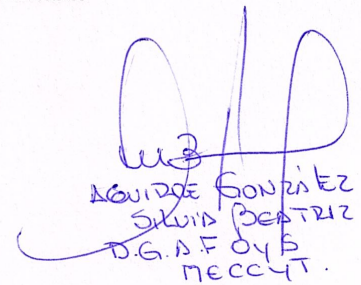 AGUIRRE GONZÁLEZ
SILVIA BEATRIZ
D.G.A.F O y B
MECCyT.